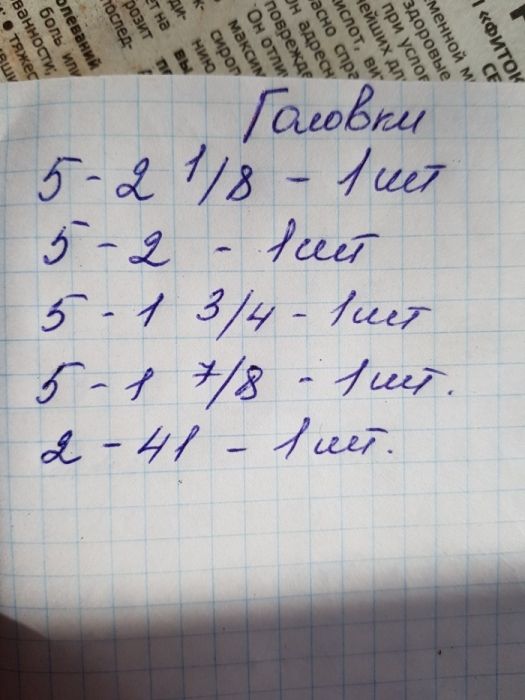 Головки
5 - 2 1/8 - 1 шт
5 - 2 - 1 шт
5 - 1 3/4 - 1 шт
5 - 1 7/8 - 1 шт.
2 - 41 - 1 шт.